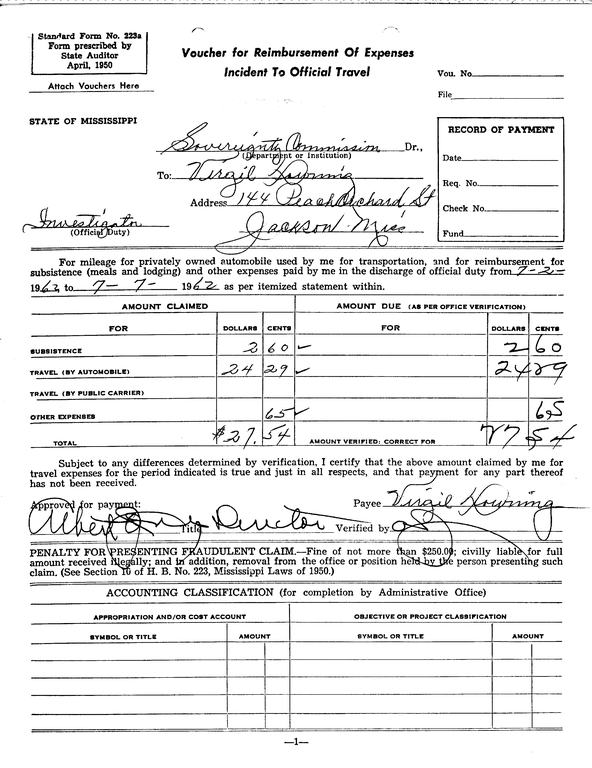 Standard Form No. 223a
Form prescribed by
State Auditor
April, 1950
Attach Vouchers Here
Voucher for Reimbursement Of Expenses
Incident To Official Travel
Vou. No.
File
STATE OF MISSISSIPPI
Sovereignty Commission Dr.,
(Department or Institution)
To: Virgil Downing
Address 144 Peach Orchard St
Jackson Miss
Investigator
(Official Duty)
RECORD OF PAYMENT
Date
Req. No.
Check No.
Fund
For mileage for privately owned automobile used by me for transportation, and for reimbursement for
subsistence (meals and lodging) and other expenses paid by me in the discharge of official duty from 7-2-
1962, to 7-7- 1962 as per itemized statement within.
AMOUNT CLAIMED AMOUNT DUE (AS PER OFFICE VERIFICATION)
FOR DOLLARS CENTS FOR DOLLARS CENTS
SUBSISTENCE 2 60 ✓ 2 60
TRAVEL (BY AUTOMOBILE) 24 29 ✓ 24 29
TRAVEL (BY PUBLIC CARRIER)
OTHER EXPENSES 65 ✓ 65
TOTAL $27.54 AMOUNT VERIFIED: CORRECT FOR 27 54
Subject to any differences determined by verification, I certify that the above amount claimed by me for
travel expenses for the period indicated is true and just in all respects, and that payment for any part thereof
has not been received.
Approved for payment: Payee Virgil Downing
Albert Title Director Verified by
PENALTY FOR PRESENTING FRAUDULENT CLAIM.—Fine of not more than $250.00; civilly liable for full
amount received illegally; and in addition, removal from the office or position held by the person presenting such
claim. (See Section 16 of H. B. No. 223, Mississippi Laws of 1950.)
ACCOUNTING CLASSIFICATION (for completion by Administrative Office)
APPROPRIATION AND/OR COST ACCOUNT OBJECTIVE OR PROJECT CLASSIFICATION
SYMBOL OR TITLE AMOUNT SYMBOL OR TITLE AMOUNT
—1—